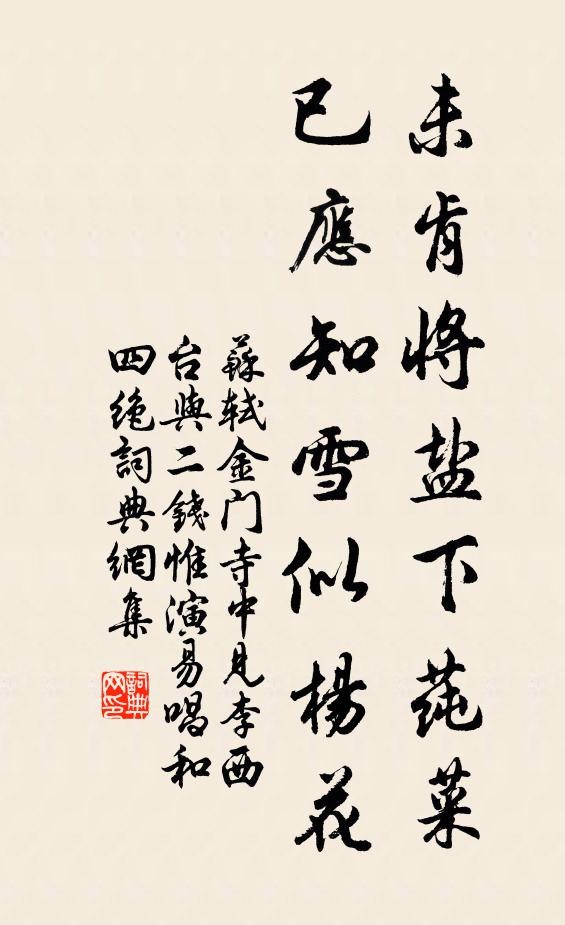 未肯將盐下莼菜
已應知雪似楊花
蘇軾金门寺中見李西
台與二錢惟演易唱和
四絶詞典網集
詞典网印